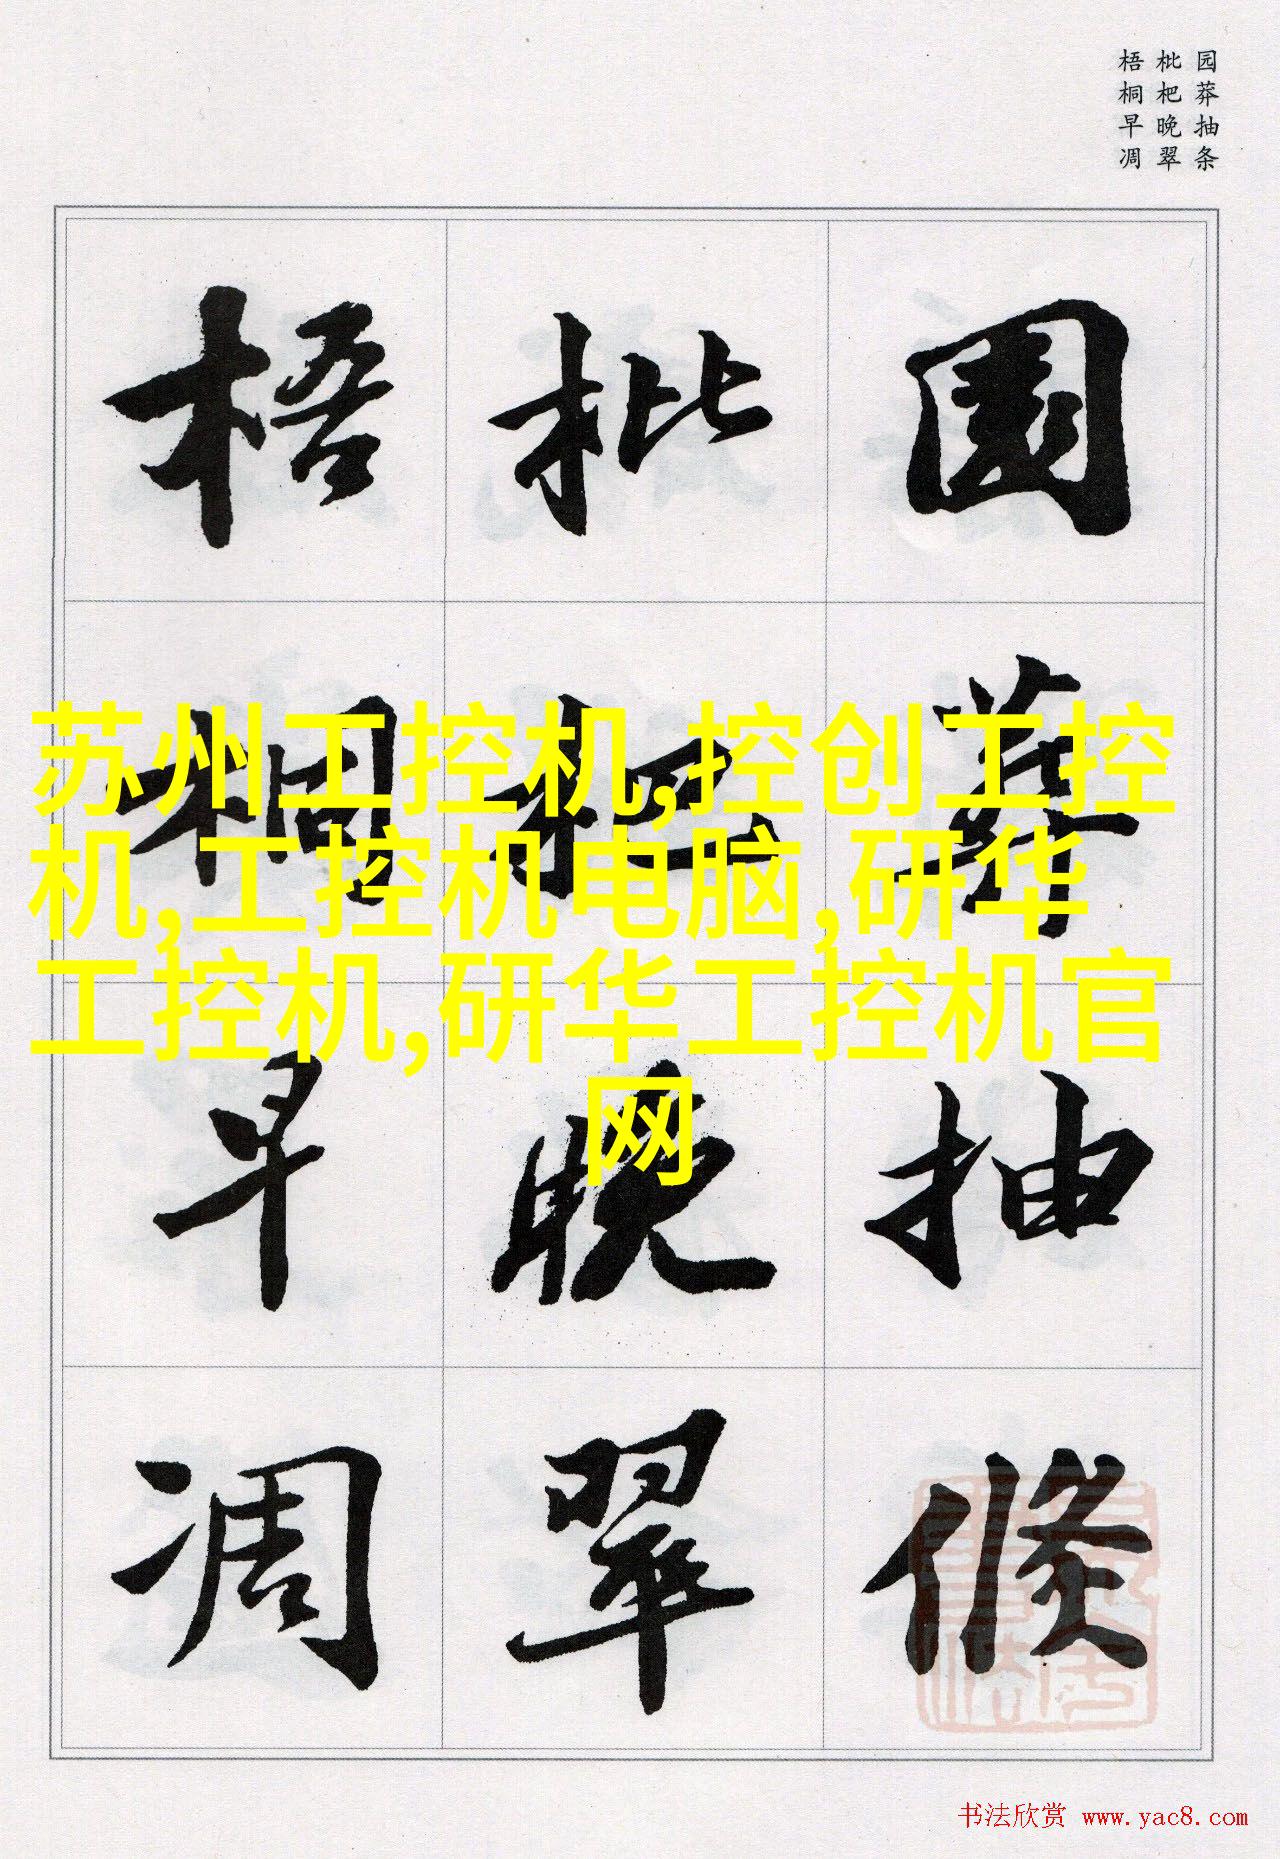 园莽抽条
枇杷晚翠
梧桐早凋
園莽抽條
枇杷晚翠
梧桐早凋
苏州工控机,控创工控
机,工控机电脑,研华
工控机,研华工控机官
网
书法欣赏 www.yac8.com